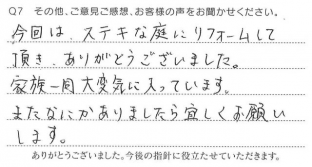 Q7 その他、ご意見ご感想、お客様の声をお聞かせください。
今回は、ステキな庭にリフォームして
頂き、ありがとうございました。
家族一同大変気に入っています。
またなにかありましたら宜しくお願い
します。
ありがとうございました。今後の指針に役立たせていただきます。